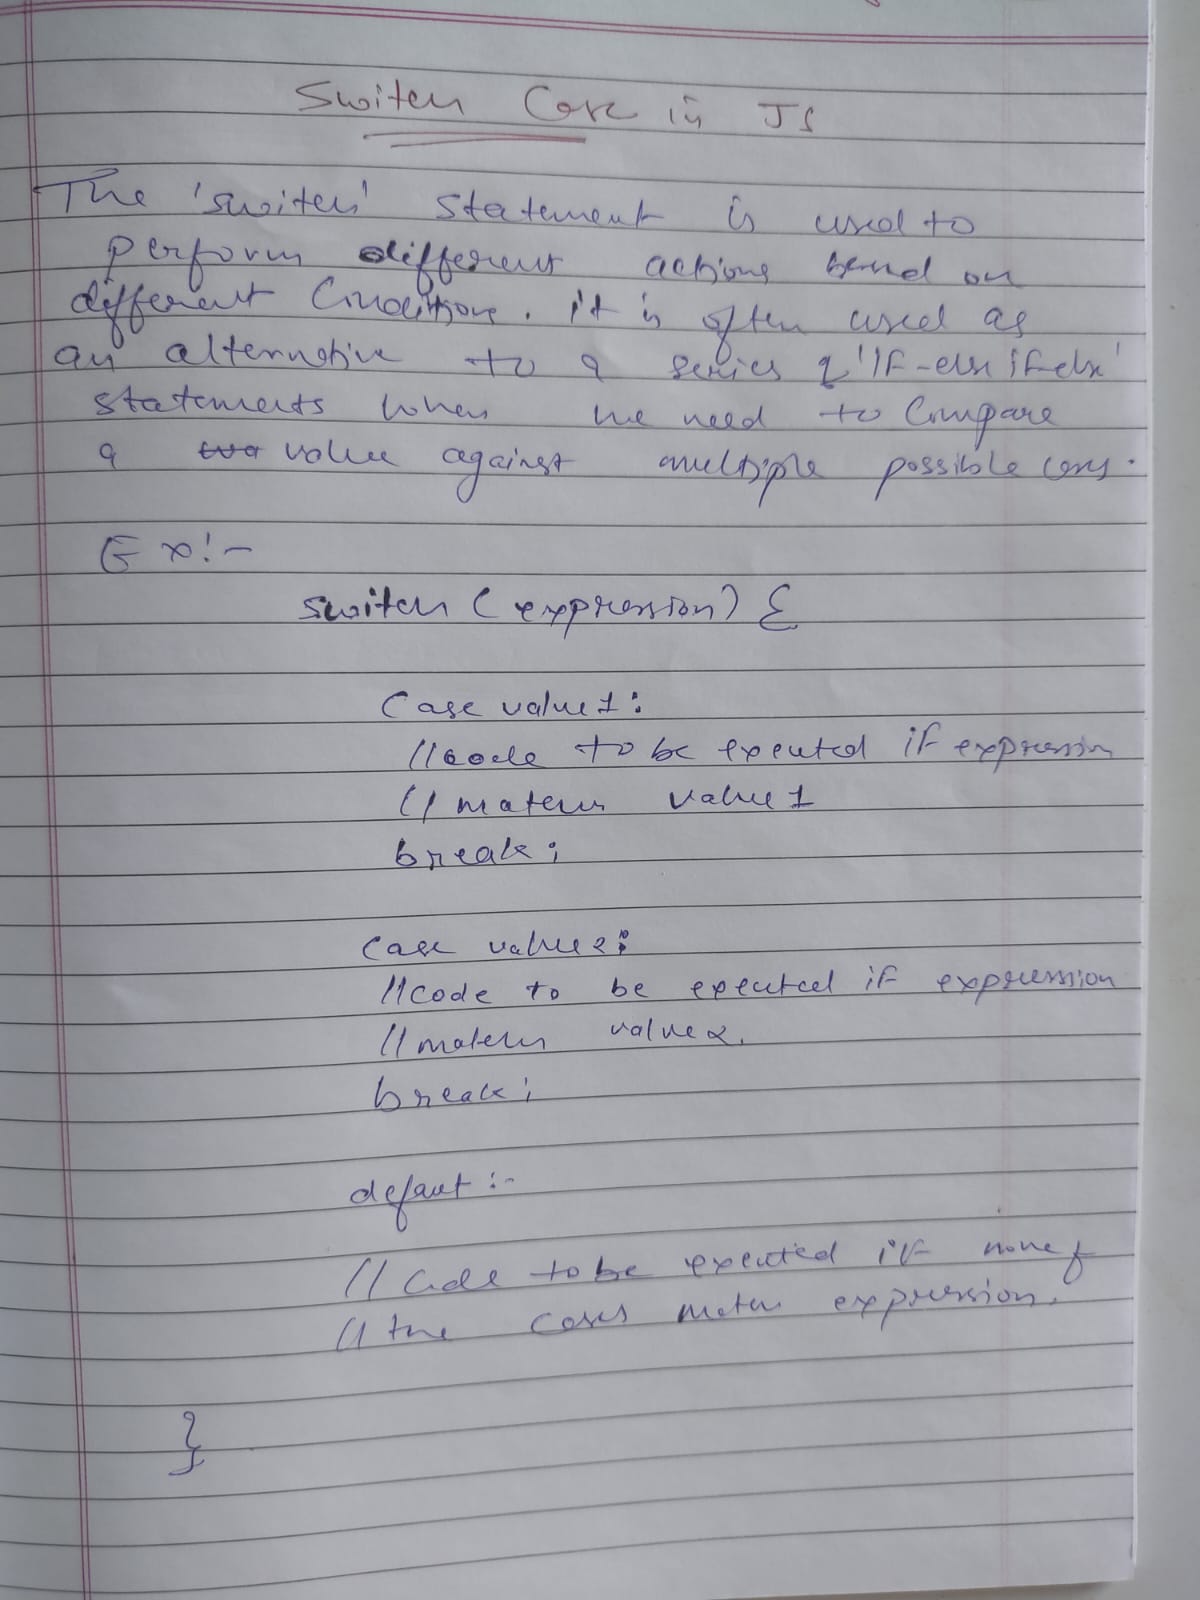 Switch Case in JS
The 'switch' statement is used to
perform different actions based on
different Conditions. it is often used as
an alternative to a series of 'if-else if else'
statements when we need to Compare
a value against multiple possible cases.
Ex:-
switch (expression) {
Case value1:
//code to be executed if expression
// match value1
break;
Case value2:
//code to be executed if expression
//match value2.
break;
defaut :-
// Code to be executed if none of
// the cases match expression.
}